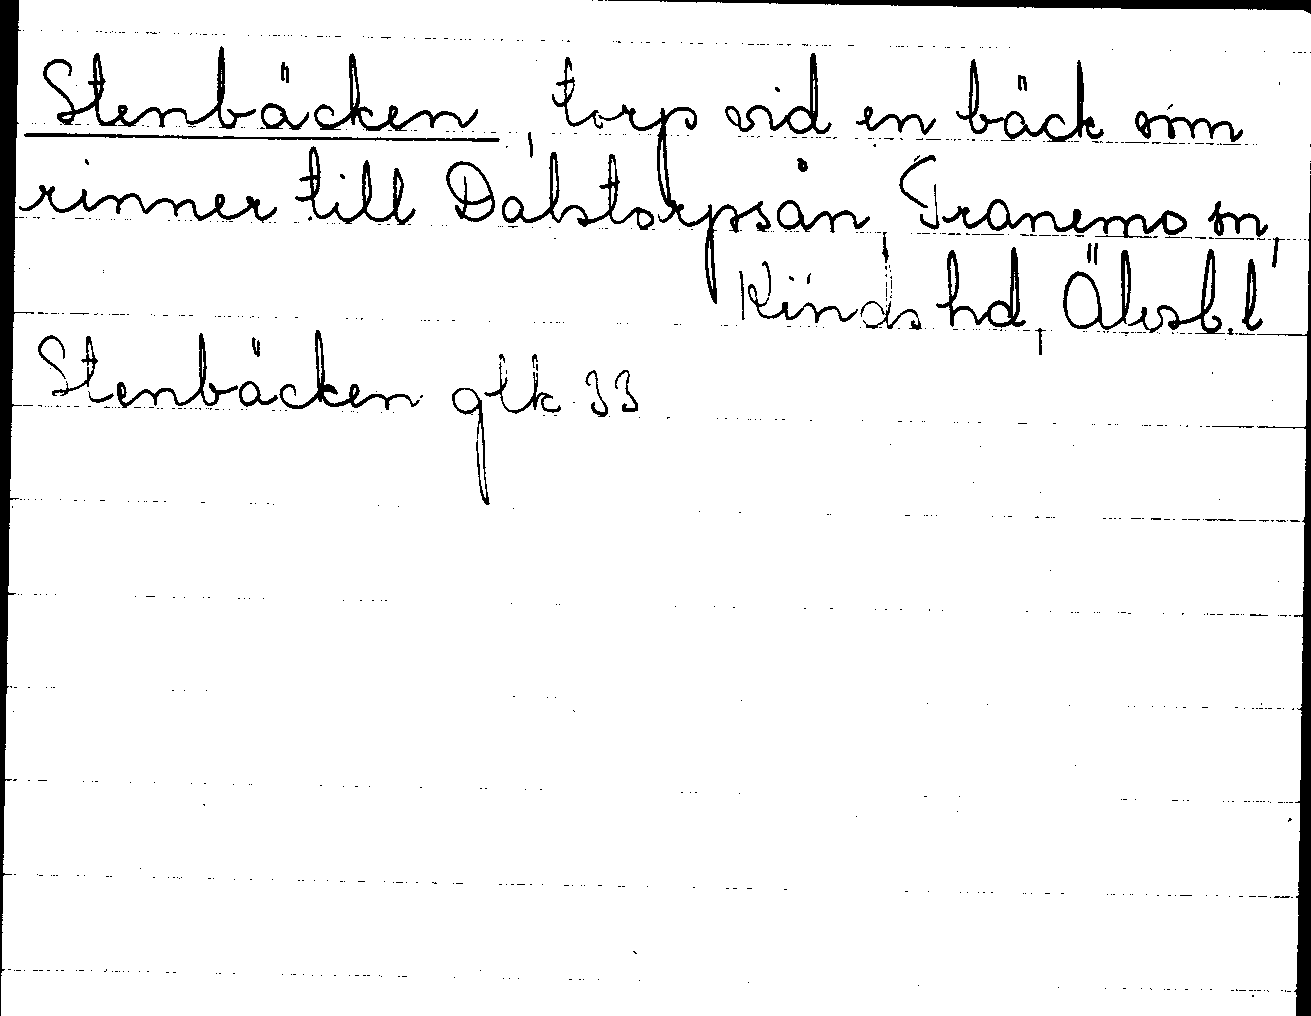 Stenbäcken, torp vid en bäck som
rinner till Dalstorpsån, Tranemo sn,
Kinds hd, Älvsb. l
Stenbäcken glk 33